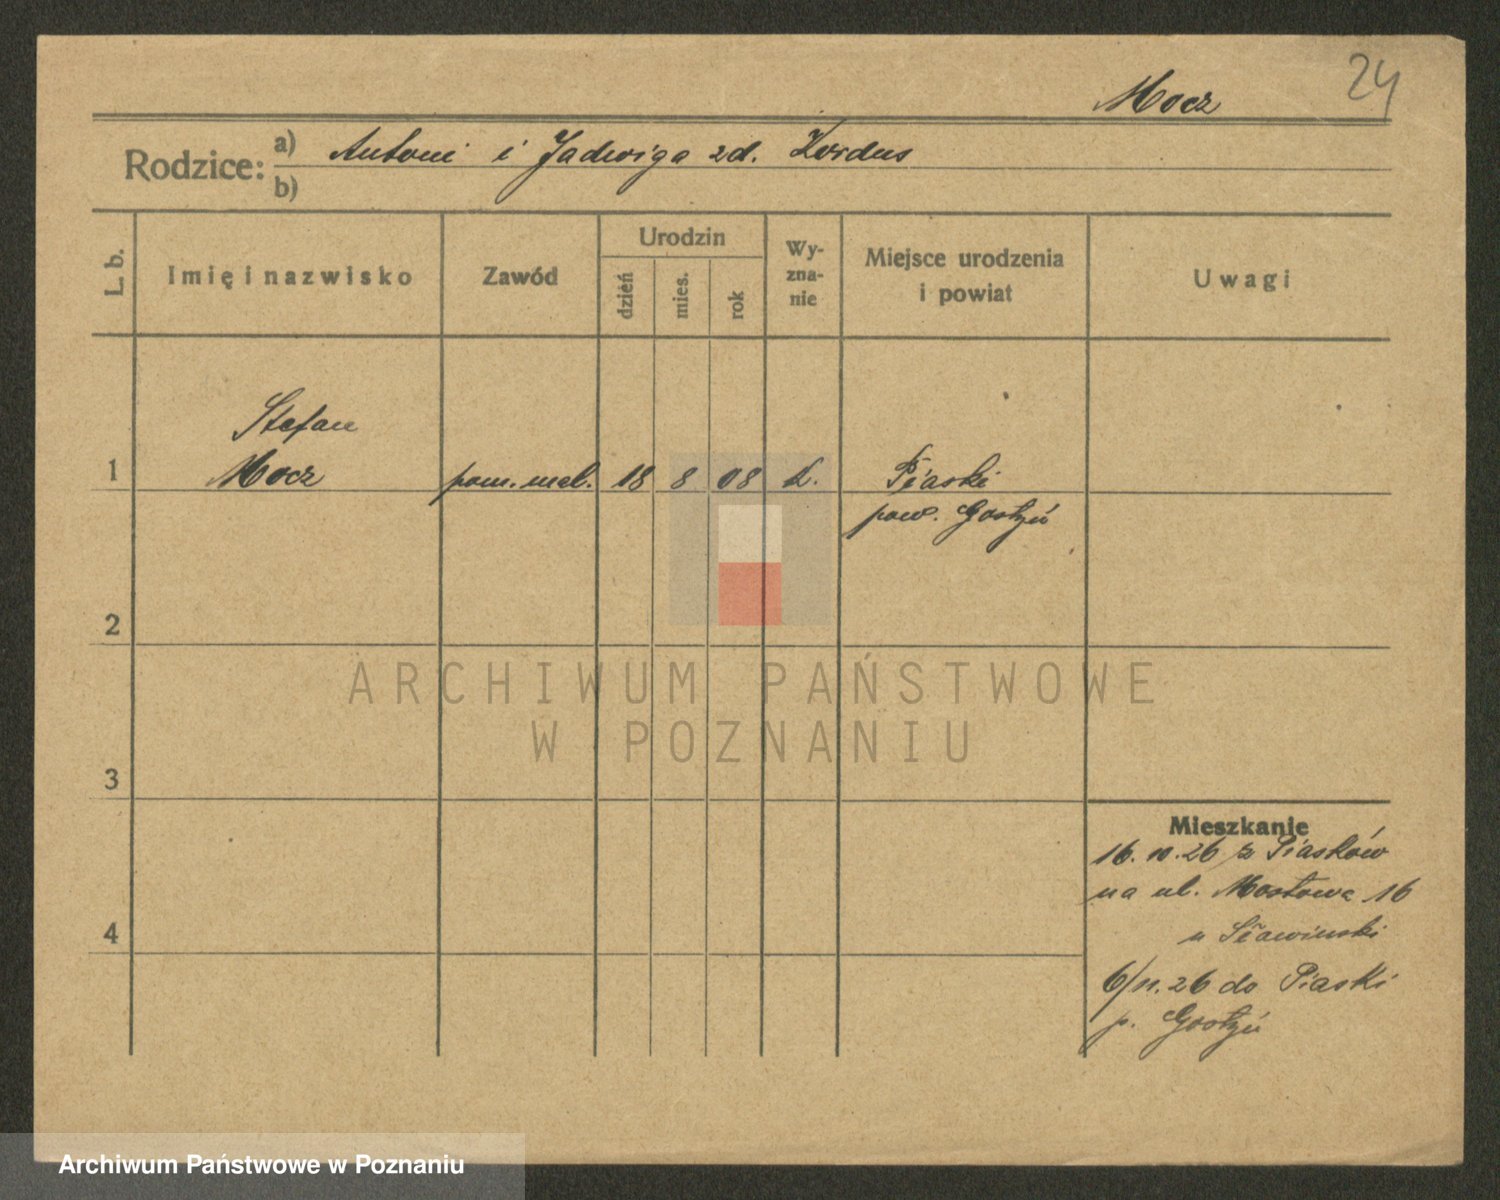 24
Mocz
Rodzice: a) Antoni i Jadwiga zd. Kordus
b)
L. b. Imię i nazwisko Zawód Urodzin dzień mies. rok Wy-zna-nie Miejsce urodzenia i powiat Uwagi
Stefan
1 Mocz pom. mal. 18 8 08 k. Piaski
pow. Gostyń
2
ARCHIWUM PAŃSTWOWE
W POZNANIU
3
Mieszkanie
16. 10. 26 z Piasków
na ul. Mostowa 16
4 u Sławinski
6/11. 26 do Piaski
p. Gostyń
Archiwum Państwowe w Poznaniu